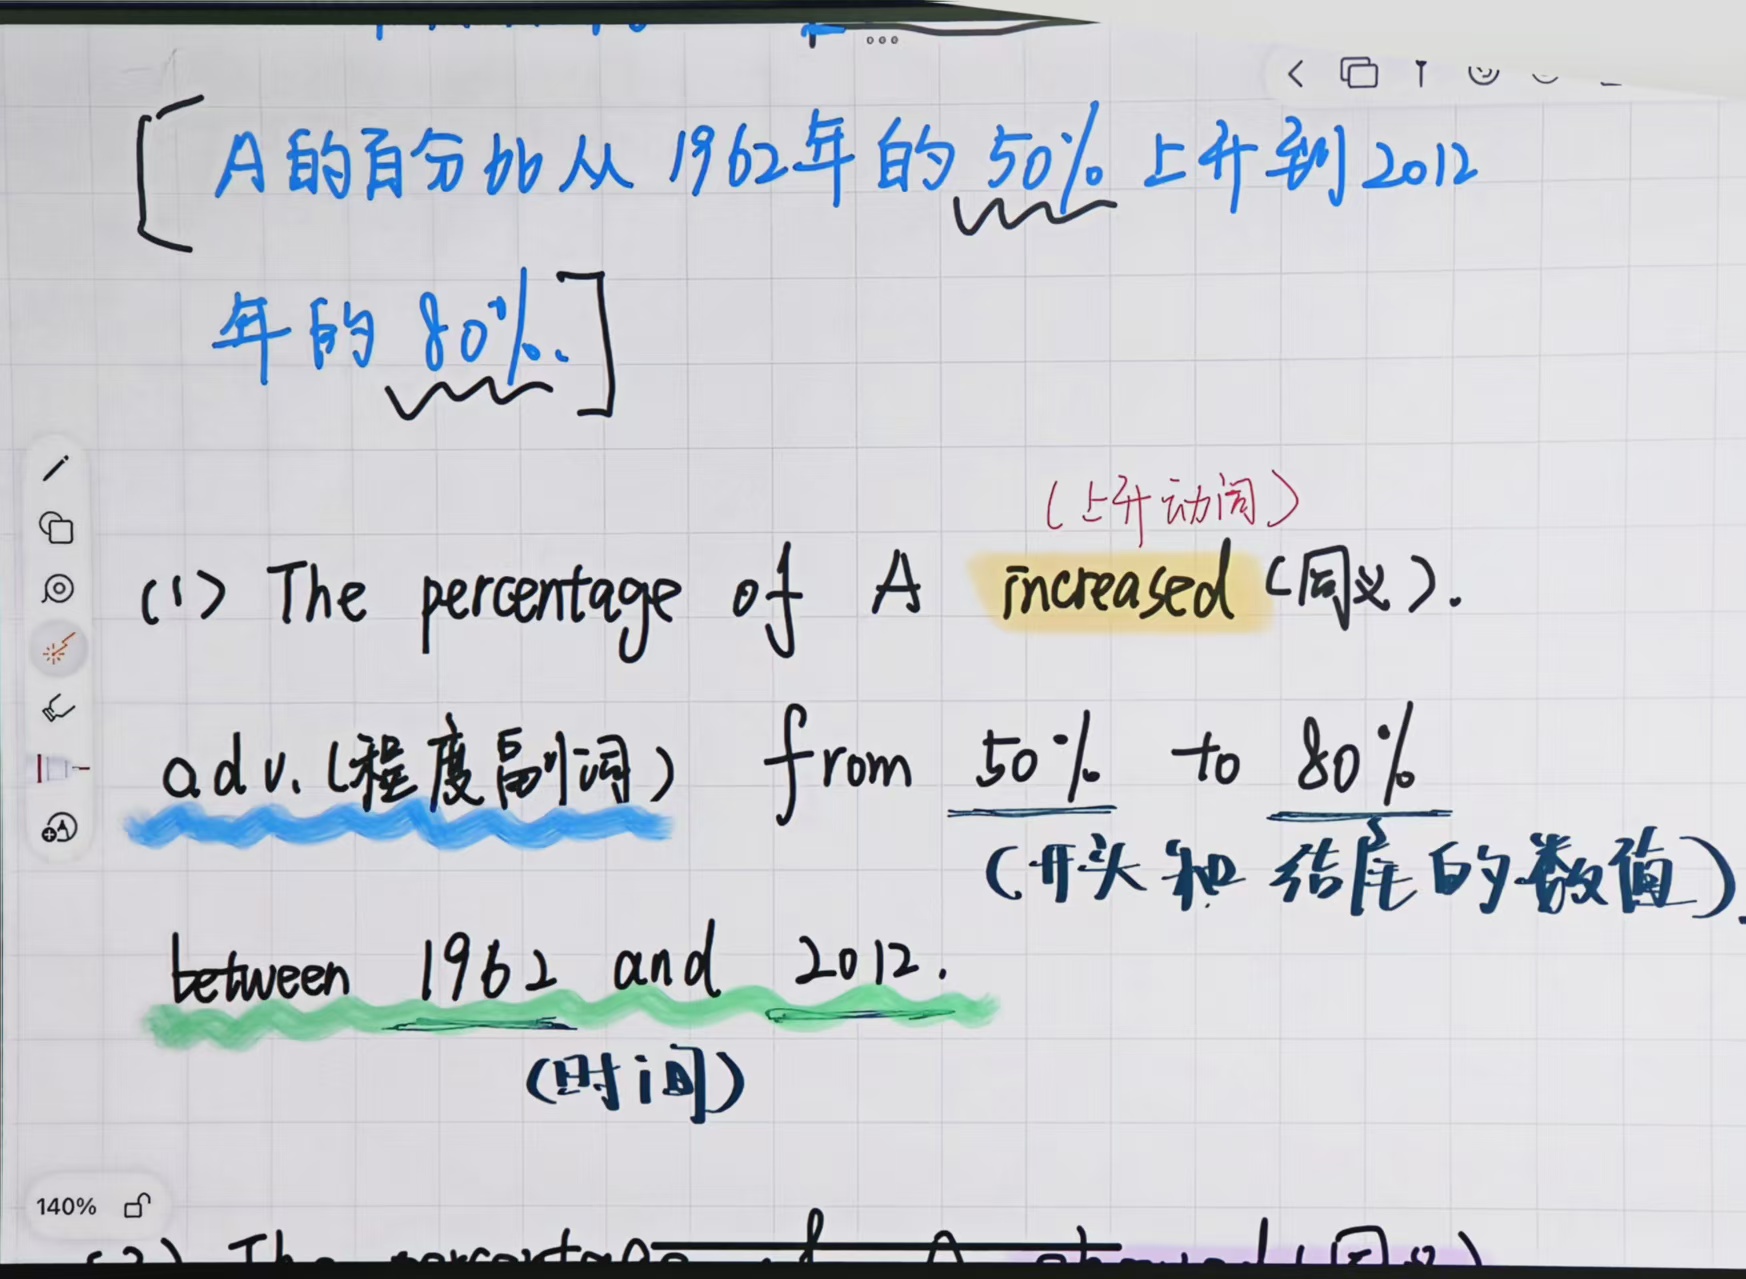 A的百分比从1962年的50%上升到2012
年的80%.
(上升动词)
(1) The percentage of A increased (同义).
adv.(程度副词) from 50% to 80%
(开头和结尾的数值).
between 1962 and 2012.
(时间)
140%
(2) The percentage of A showed (同义)